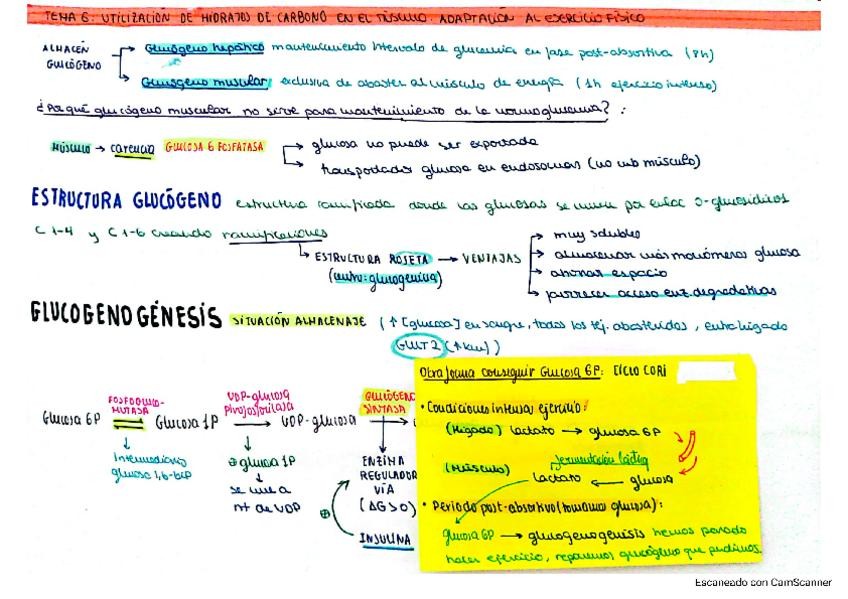 TEMA 6: UTILIZACIÓN DE HIDRATOS DE CARBONO EN EL MÚSCULO: ADAPTACIÓN AL EJERCICIO FÍSICO
ALMACÉN GLUCÓGENO
Glucógeno hepático mantenimiento intervalo de glucemia en fase post-absortiva (8h)
Glucógeno muscular exclusiva de abastecer al músculo de energía (1h ejercicio intenso)
¿Por qué glucógeno muscular no sirve para mantenimiento de la normoglucemia? :
MÚSCULO → carencia GLUCOSA 6 FOSFATASA
glucosa no puede ser exportada
transportador glucosa en endosomas (no mb músculo)
ESTRUCTURA GLUCÓGENO estructura ramificada donde las glucosas se unen por enlac O-glucosídicos
C1-4 y C1-6 creando ramificaciones
ESTRUCTURA ROSETA → VENTAJAS
(centro: glucogenina)
muy solubles
almacenar más monómeros glucosa
ahorrar espacio
favorecer acceso enz. degradativas
GLUCOGENOGÉNESIS SITUACIÓN ALMACENAJE (↑ [glucosa] en sangre, todos los tej. abastecidos, entra hígado
GLUT 2 (↑km))
Glucosa 6P
FOSFOGLUCO-
MUTASA
Glucosa 1P
UDP-glucosa
pirofosforilasa
UDP-glucosa
GLUCÓGENO
SINTASA
Intermediario
glucosa 1,6-bisP
glucosa 1P
se une a
nt de UDP
ENZIMA
REGULADOR
VÍA
INSULINA
Otra forma conseguir Glucosa 6P: CICLO CORI
• Condiciones intensas ejercicio:
(Hígado) lactato → glucosa 6P
fermentación láctica
(Músculo) lactato ← glucosa
• Periodo post-absortivo (tomamos glucosa):
glucosa 6P → glucogenogénesis hemos parado
hacer ejercicio, reponemos glucógeno que perdimos.
Escaneado con CamScanner